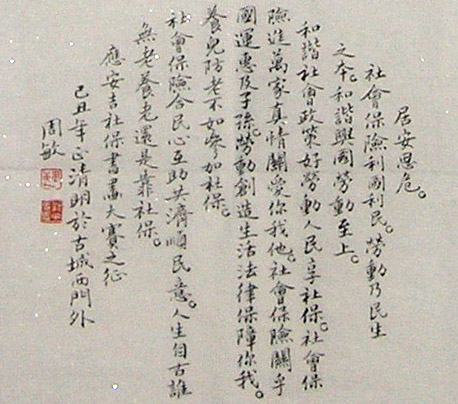 居安思危。
社會保險利國利民。勞動乃民生
之本。和諧興國勞動至上。
和諧社會政策好勞動人民享社保。社會保
險進萬家真情關愛你我他。社會保險關乎
國運惠及子孫。勞動創造生活法律保障你我。
養兒防老不如參加社保。
社會保險合民心互助共濟順民意。人生自古誰
無老養老還是靠社保。
應安吉社保書畫大賽之征
己丑年正清明於古城西門外
周敏